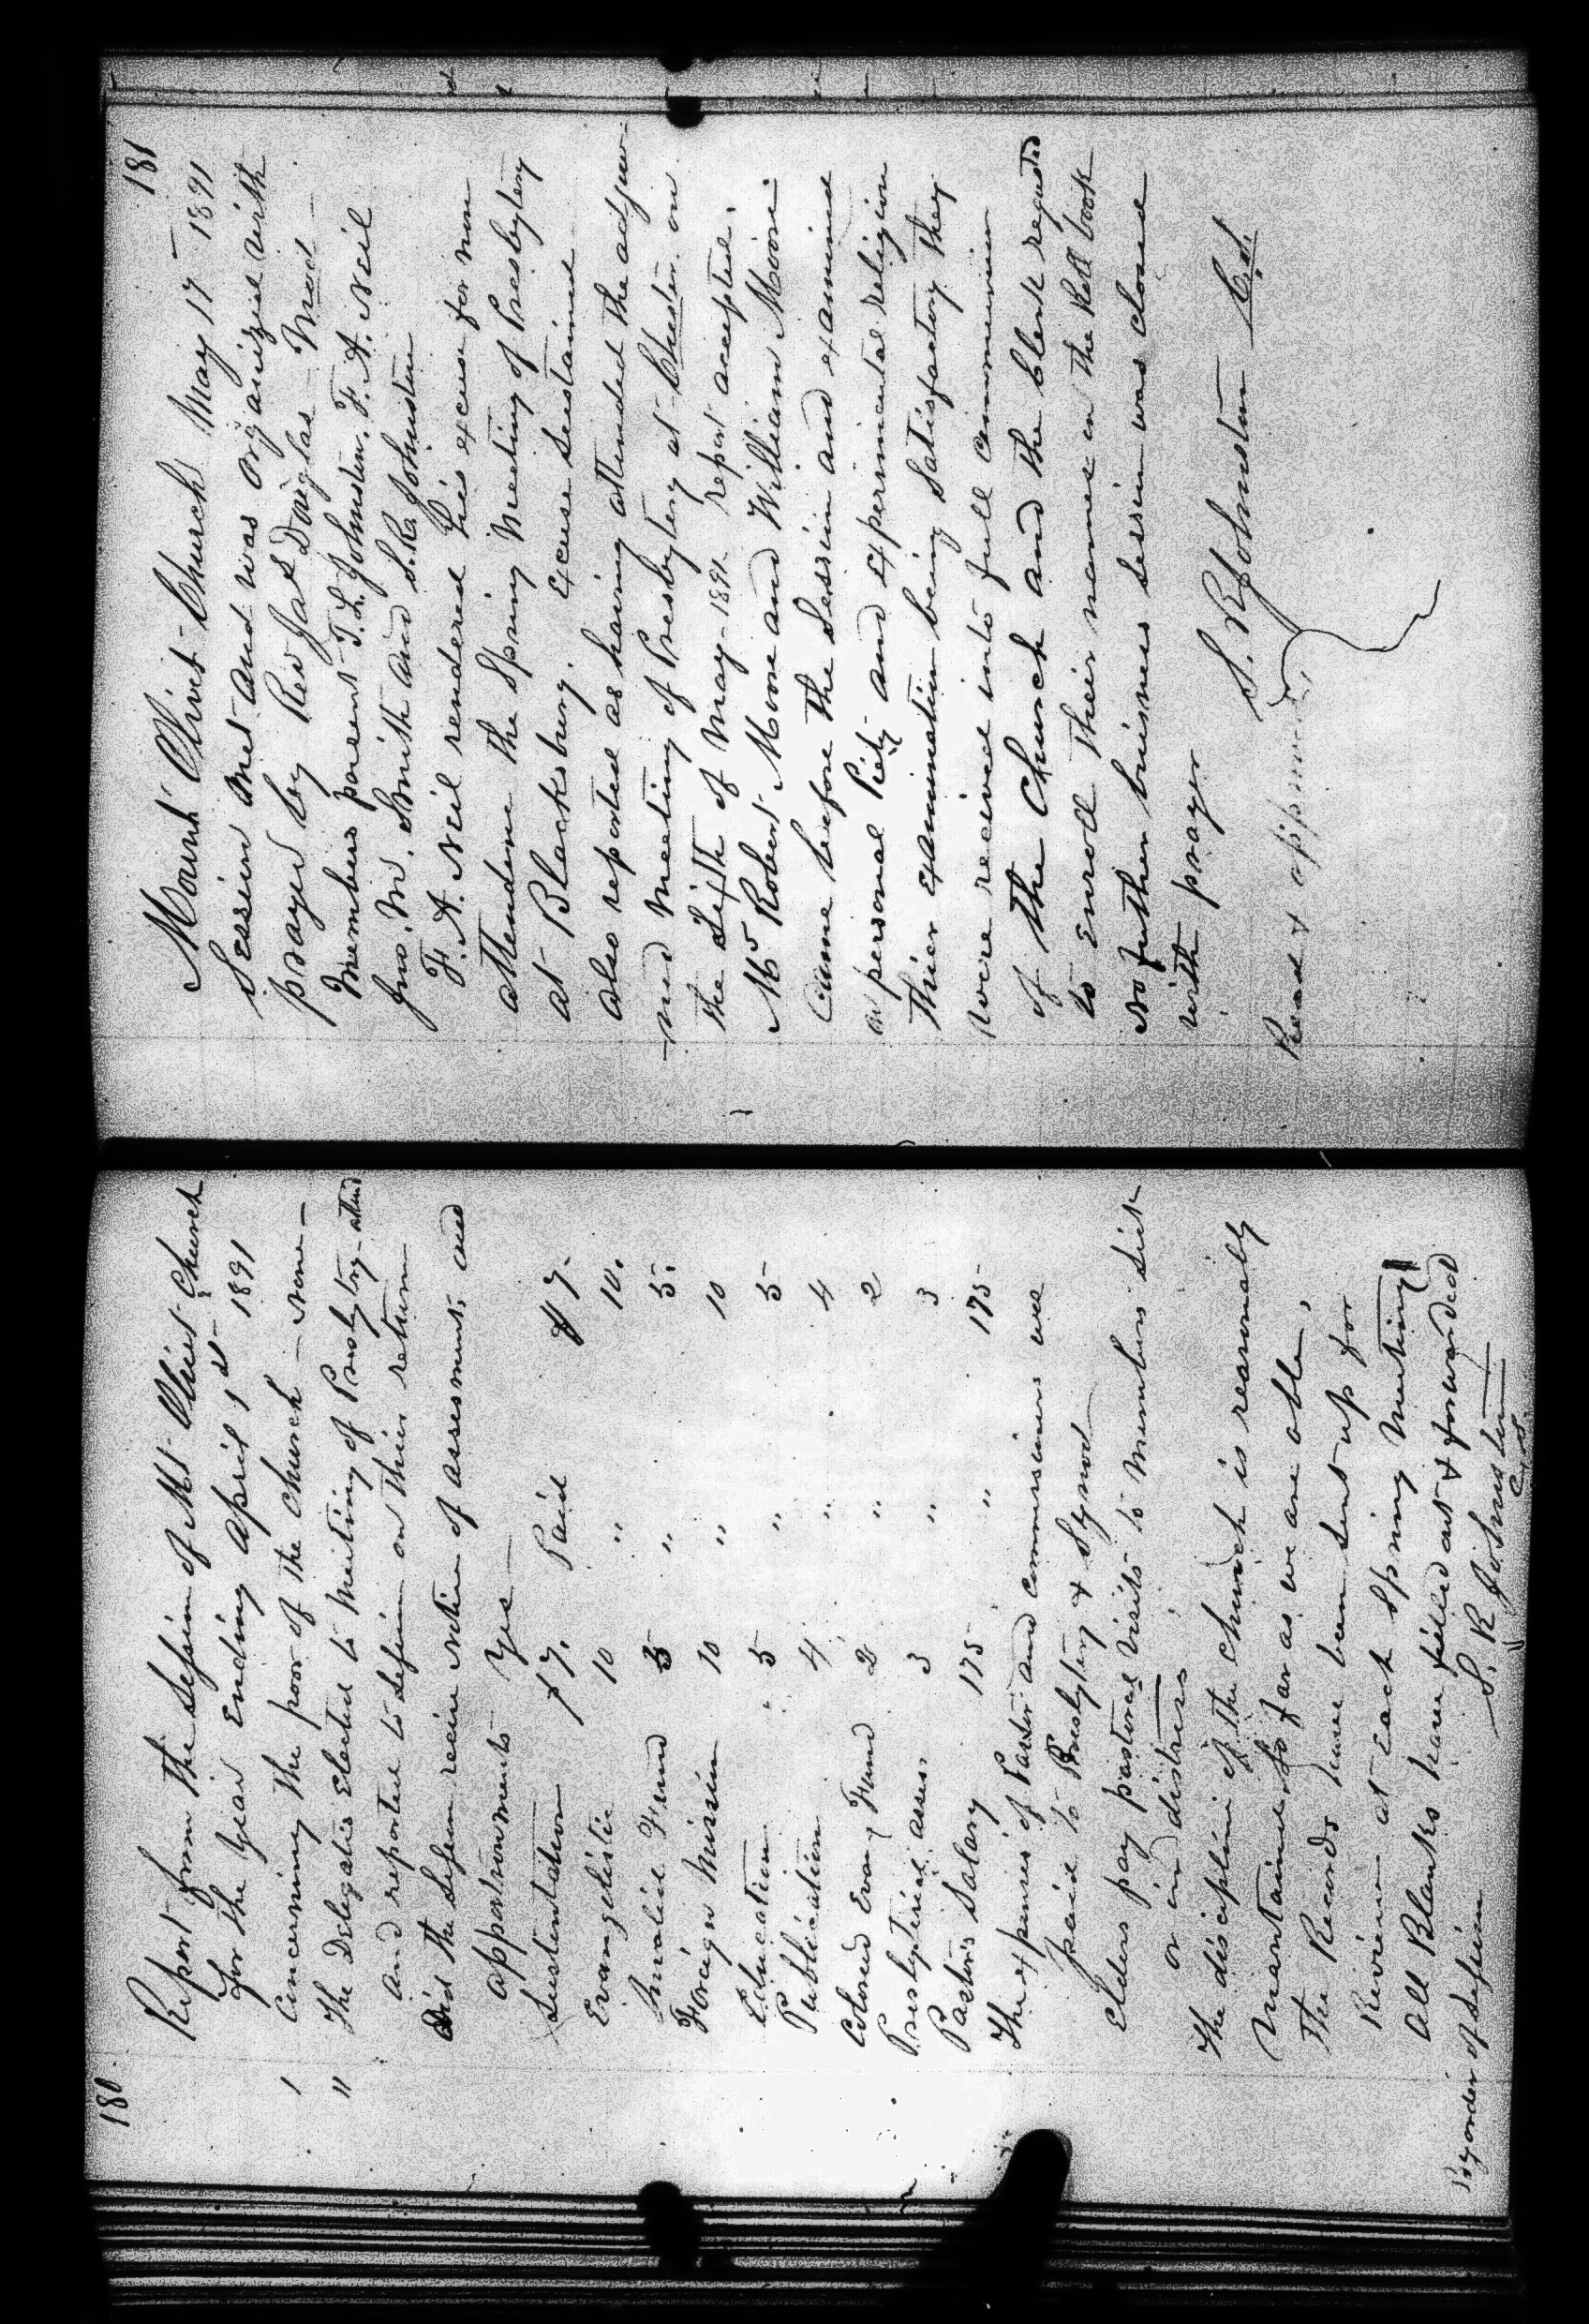 180
Report from the Session of Mt Olivet Church
for the Year Ending April 1st 1891
1 Concerning the poor of the Church — None —
" The Delegates Elected to Meeting of Presbytry attend
and reported to Session on their return
Did the Session receive Notice of assessments, and
apportionments Yes —
Sustentation $7. Paid $7.
Evangelistic 10 " 10.
Invalid Fund 5 " 5.
Foreign Mission 10 " 10
Education 5 " 5
Publication 4 " 4
Colored Evang Fund 2 " 2
Presbyterial asses. 3 " 3
Pastors Salary 175 " 175
The expenses of Pastor and commissioners were
paid to Presbytery & Synod
Elders pay pastoral visits to members sick
or in distress
The discipline of the Church is reasonably
maintained so far as we are able,
The Records have been sent up for
Review at Each Spring Meeting
All Blanks have filled out & forwarded
By order of Session S. R. Johnston
181
Mount Olivet Church May 17 — 1891
Session Met and was organized with
prayer by Rev Jas Douglas — Mod —
Members present T. L. Johnston, F. A. Neil
Jno. M. Smith and S. R. Johnston
F. A. Neil rendered his excuse for non
attendence the Spring Meeting of Presbytery
at Blacksburg. Excuse Sustained
also reported as having attended the adjour-
-ned Meeting of Presbytery at Chester on
the fifth of May — 1891 report accepted.
Mrs Robert Moore and William Moore
Came before the Session and examined
on personal Piety and experimental religion
Thier examination being Satisfactory they
were received into full communion
of the Church and the Clerk requsted
to enroll their names on the Roll book
No futher buisness session was closed
with prayer
S. R. Johnston C.S.
Read & approved,